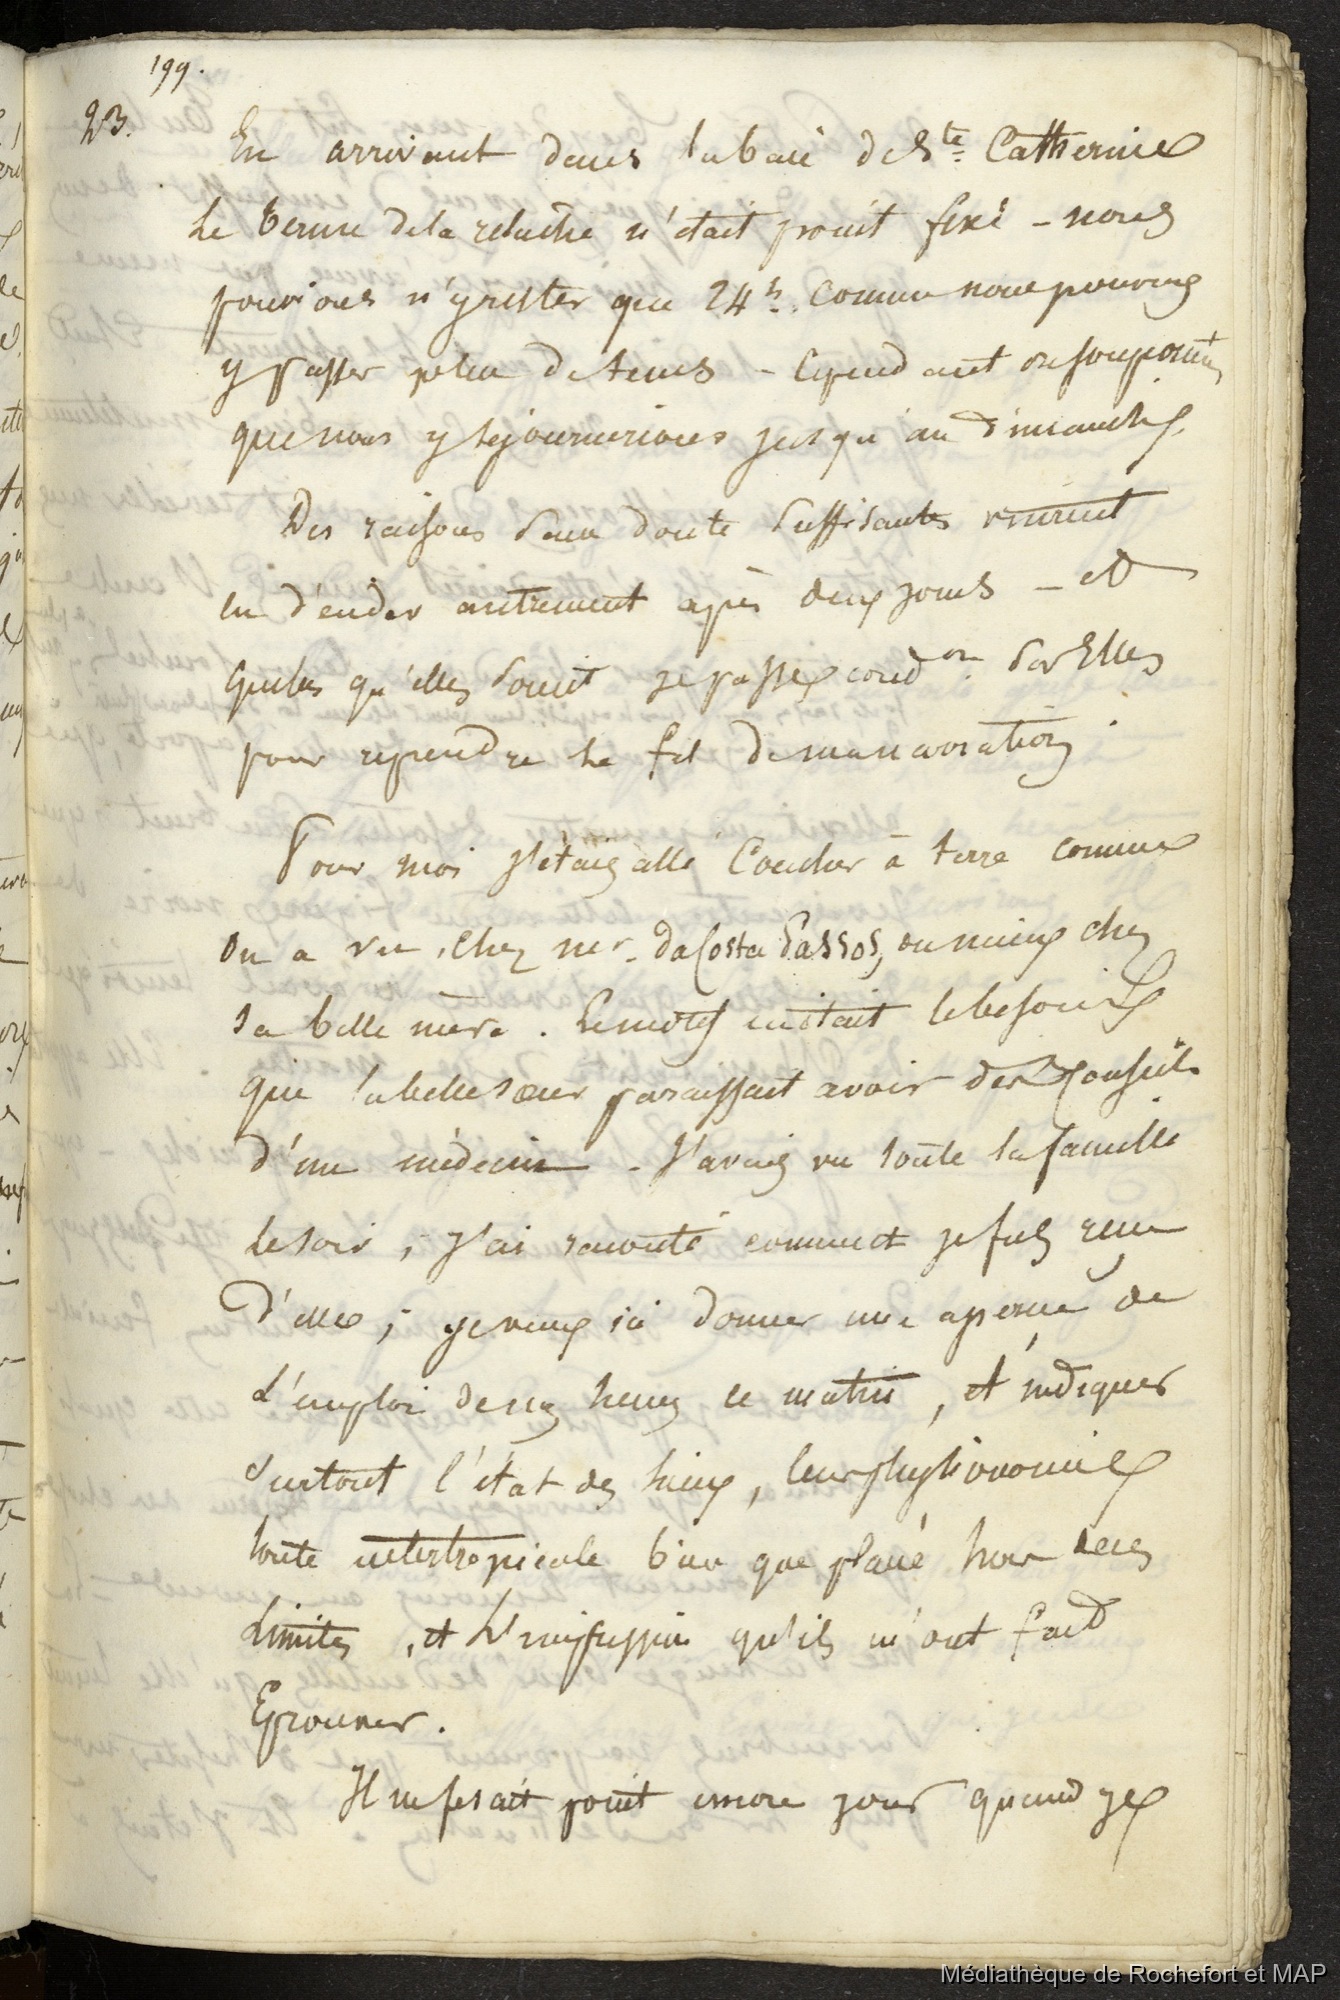 199.
23.
En arrivant dans la baie de Ste Catherine
le terme de la relache n'était point fixé – nous
pouvions n'y rester que 24 h. comme nous pouvions
y passer plus de tems – Cependant on soupçonnait
que nous y séjournerions jusqu'au dimanche.
Des raisons sans doute suffisantes vinrent
en décider autrement après deux jours – et
quelles qu'elles soient je passe cond.on sur Elles
pour reprendre le fil de ma narration.
Pour moi j'étais allé coucher à terre comme
on a vu, chez mr. da Costa Passos, ou mieux chez
sa belle mère. Le motif était le besoin
que la belle soeur paraissait avoir des Conseils
d'un médecin – J'avais vu toute la famille
le soir; j'ai raconté comment je fus reçu
d'elle; je veux ici donner une apercue de
l'emploi de nos heures ce matin, et indiquer
surtout l'état des lieux, leur physionomie
toute intertropicale bien que placé hors des
limites, et l'impression qu'ils m'ont fait
Eprouver.
Il ne fesait point encore jour quand je
Médiathèque de Rochefort et MAP